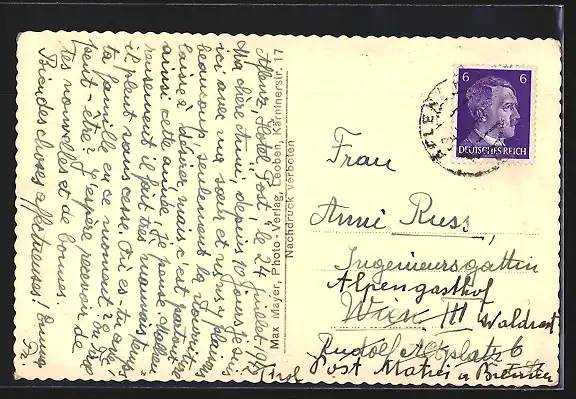 Aflenz, Hotel Post, le 24 juillet 1942
Ma chère Anni, depuis 10 jours je suis
ici avec ma sœur et nous y plaisons
beaucoup, seulement la nourriture
laisse à désirer, mais c'est partout
ainsi cette année. Je pense. Malheu-
reusement il fait très mauvais temps
il pleut sans cesse. Où es-tu avec
ta famille en ce moment?
peut-être? J'espère recevoir de
tes nouvelles et de bonnes.
Bien des choses affectueuses!
Max Mayer, Photo-Verlag, Leoben, Kärntnerstr. 17
Nachdruck verboten
6 6
DEUTSCHES REICH
AFLENZ
Frau
Anni Russ,
Ingenieursgattin
Alpengasthof
Wien III Waldrast
Rudolf platz 6
Post Matrei a Brenner
Tirol